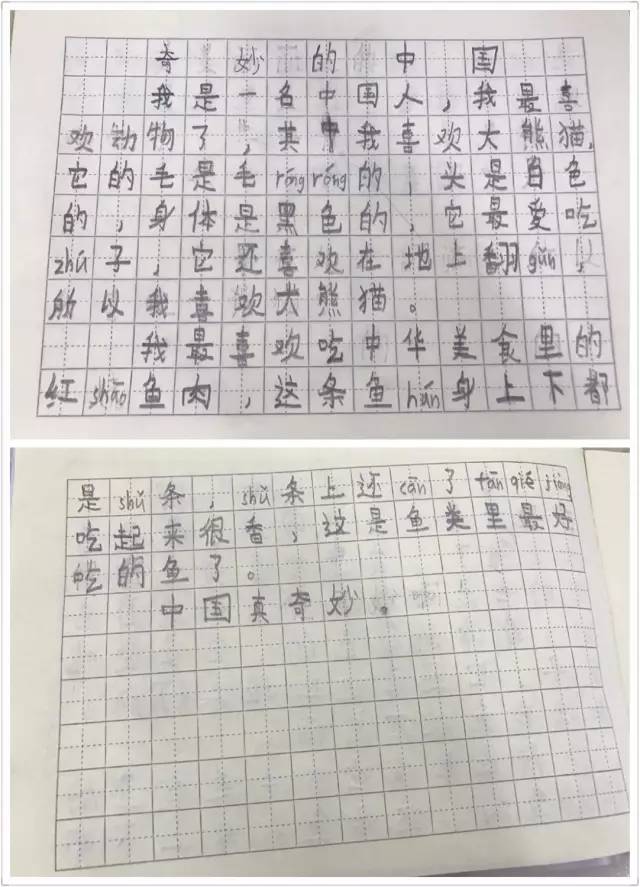 奇妙的中国
我是一名中国人，我最喜
欢动物了，其中我喜欢大熊猫，
它的毛是毛róngróng的，头是白色
的，身体是黑色的，它最爱吃
zhú子，它还喜欢在地上翻gǔn，
所以我喜欢大熊猫。
我最喜欢吃中华美食里的
红shāo鱼肉，这条鱼hún身上下都
是shǔ条，shǔ条上还cān了tāngiéjiàng
吃起来很香，这是鱼类里最好
吃的鱼了。
中国真奇妙。